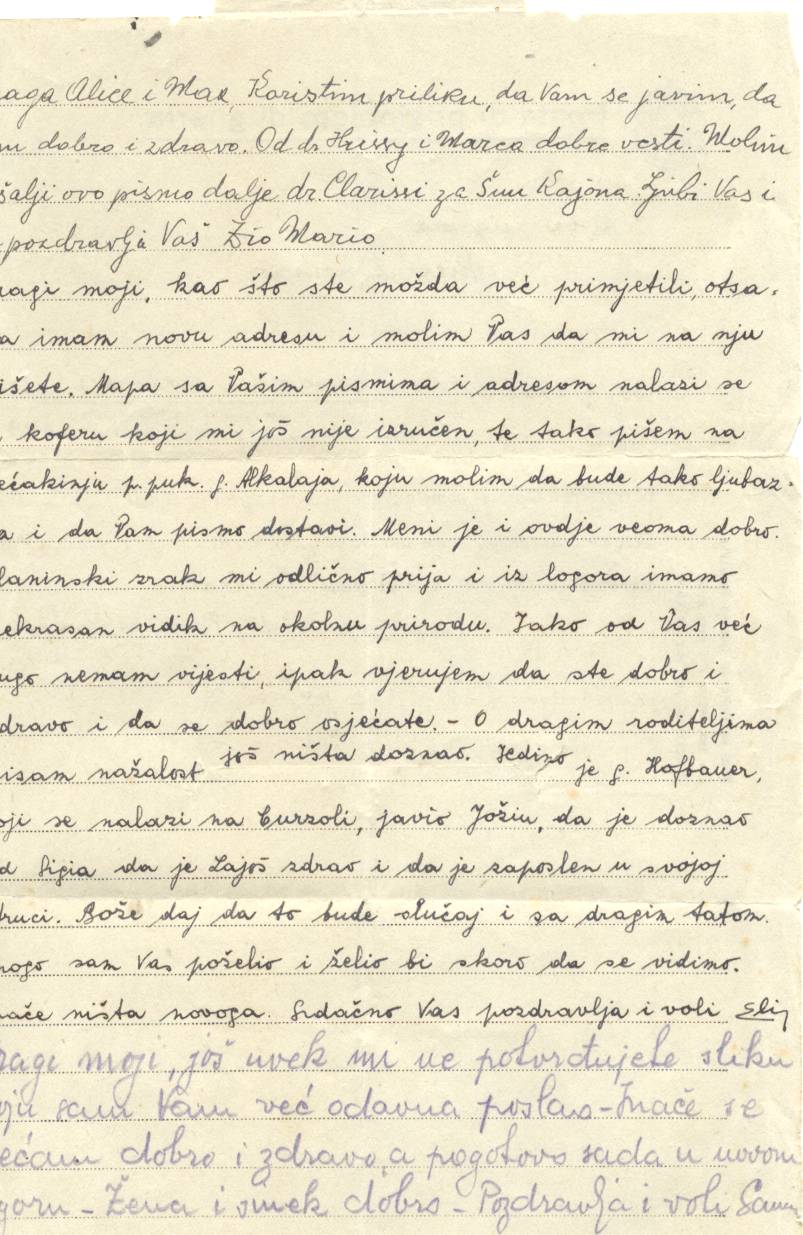 raga Alice i Max, Koristim priliku, da Vam se javim, da
m dobro i zdravo. Od dr. Hrissy i Marca dobre vesti. Molim
šalji ovo pismo dalje dr. Clarissi za Kajona. Ljubi Vas i
pozdravlja Vaš Zio Mario.
ragi moji, kao što ste možda već primjetili, otsa-
a imam novu adresu i molim Vas da mi na nju
išete. Mapa sa Vašim pismima i adresom nalazi se
koferu koji mi još nije izručen, te tako pišem na
ećakinju p. puk. g. Alkalaja, koju molim da bude tako ljubaz-
a i da Vam pismo dostavi. Meni je i ovdje veoma dobro.
laninski zrak mi odlično prija i iz logora imamo
ekrasan vidik na okolnu prirodu. Iako od Vas već
ugo nemam vijesti, ipak vjerujem da ste dobro i
dravo i da se dobro osjećate. – O dragim roditeljima
isam nažalost još ništa doznao. Jedino je g. Hofbauer,
oji se nalazi na Curzoli, javio Jožiu, da je doznao
d Sigia da je Lajoš zdrao i da je zaposlen u svojoj
truci. Bože daj da to bude slučaj i sa dragim tatom.
nogo sam Vas poželio i želio bi skoro da se vidimo.
nače ništa novoga. Srdačno Vas pozdravlja i voli Eli
ragi moji, još uvek mi ne potvrđujete sliku
oju sam Vam već odavna poslao – Inače se
ećam dobro i zdravo, a pogotovo sada u novom
goru – Žena i smek dobro – Pozdravlja i voli